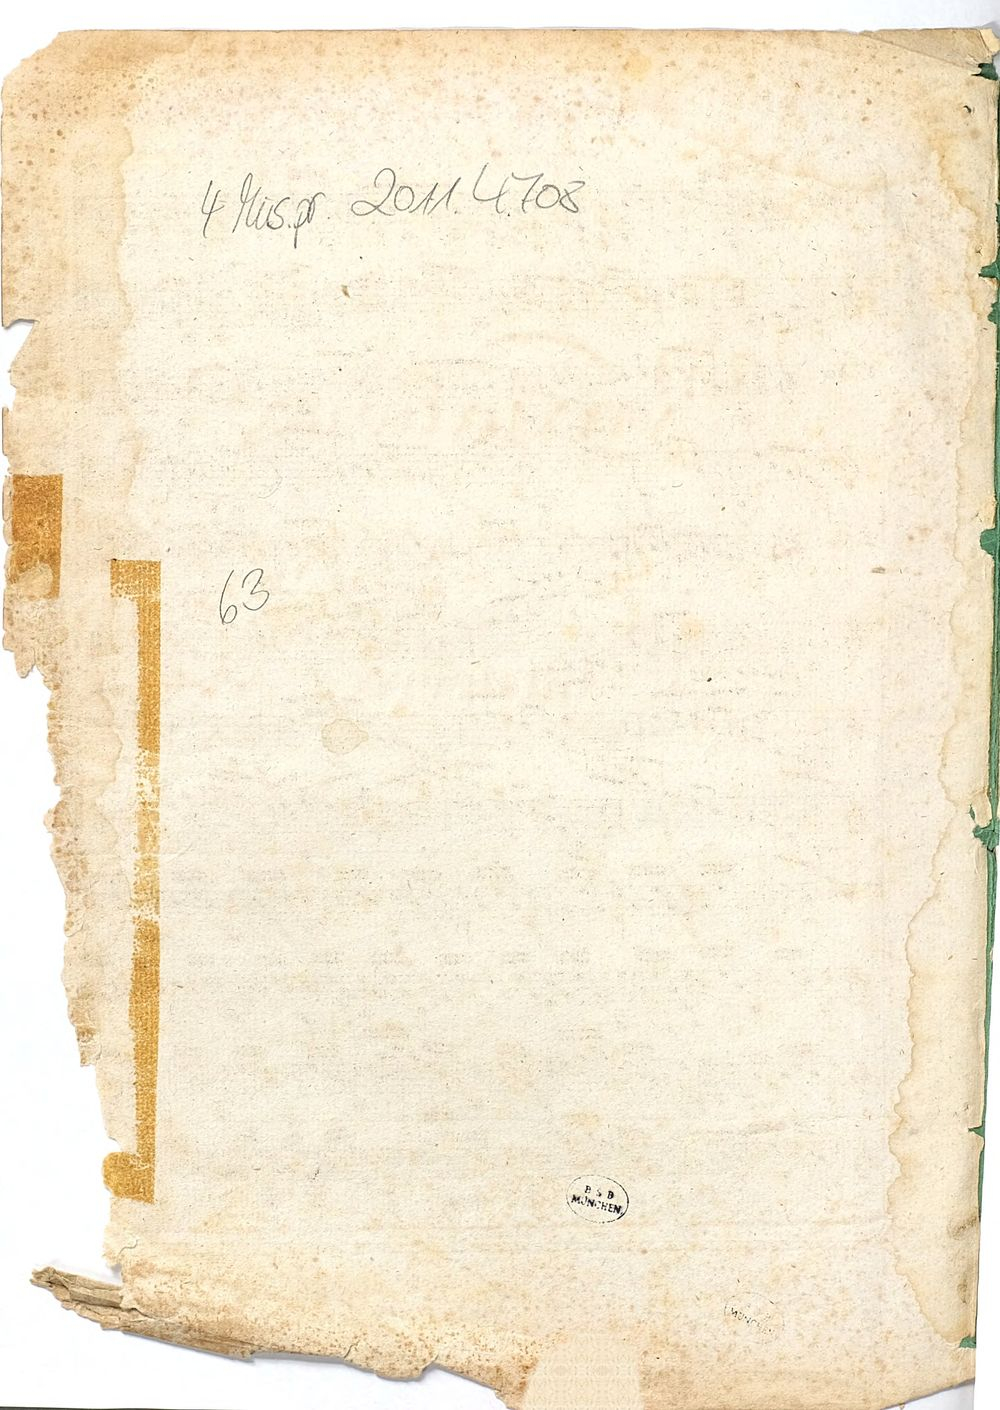 4 Mus.pr. 2011.4708
63
B S B
MÜNCHEN
MÜNCHEN